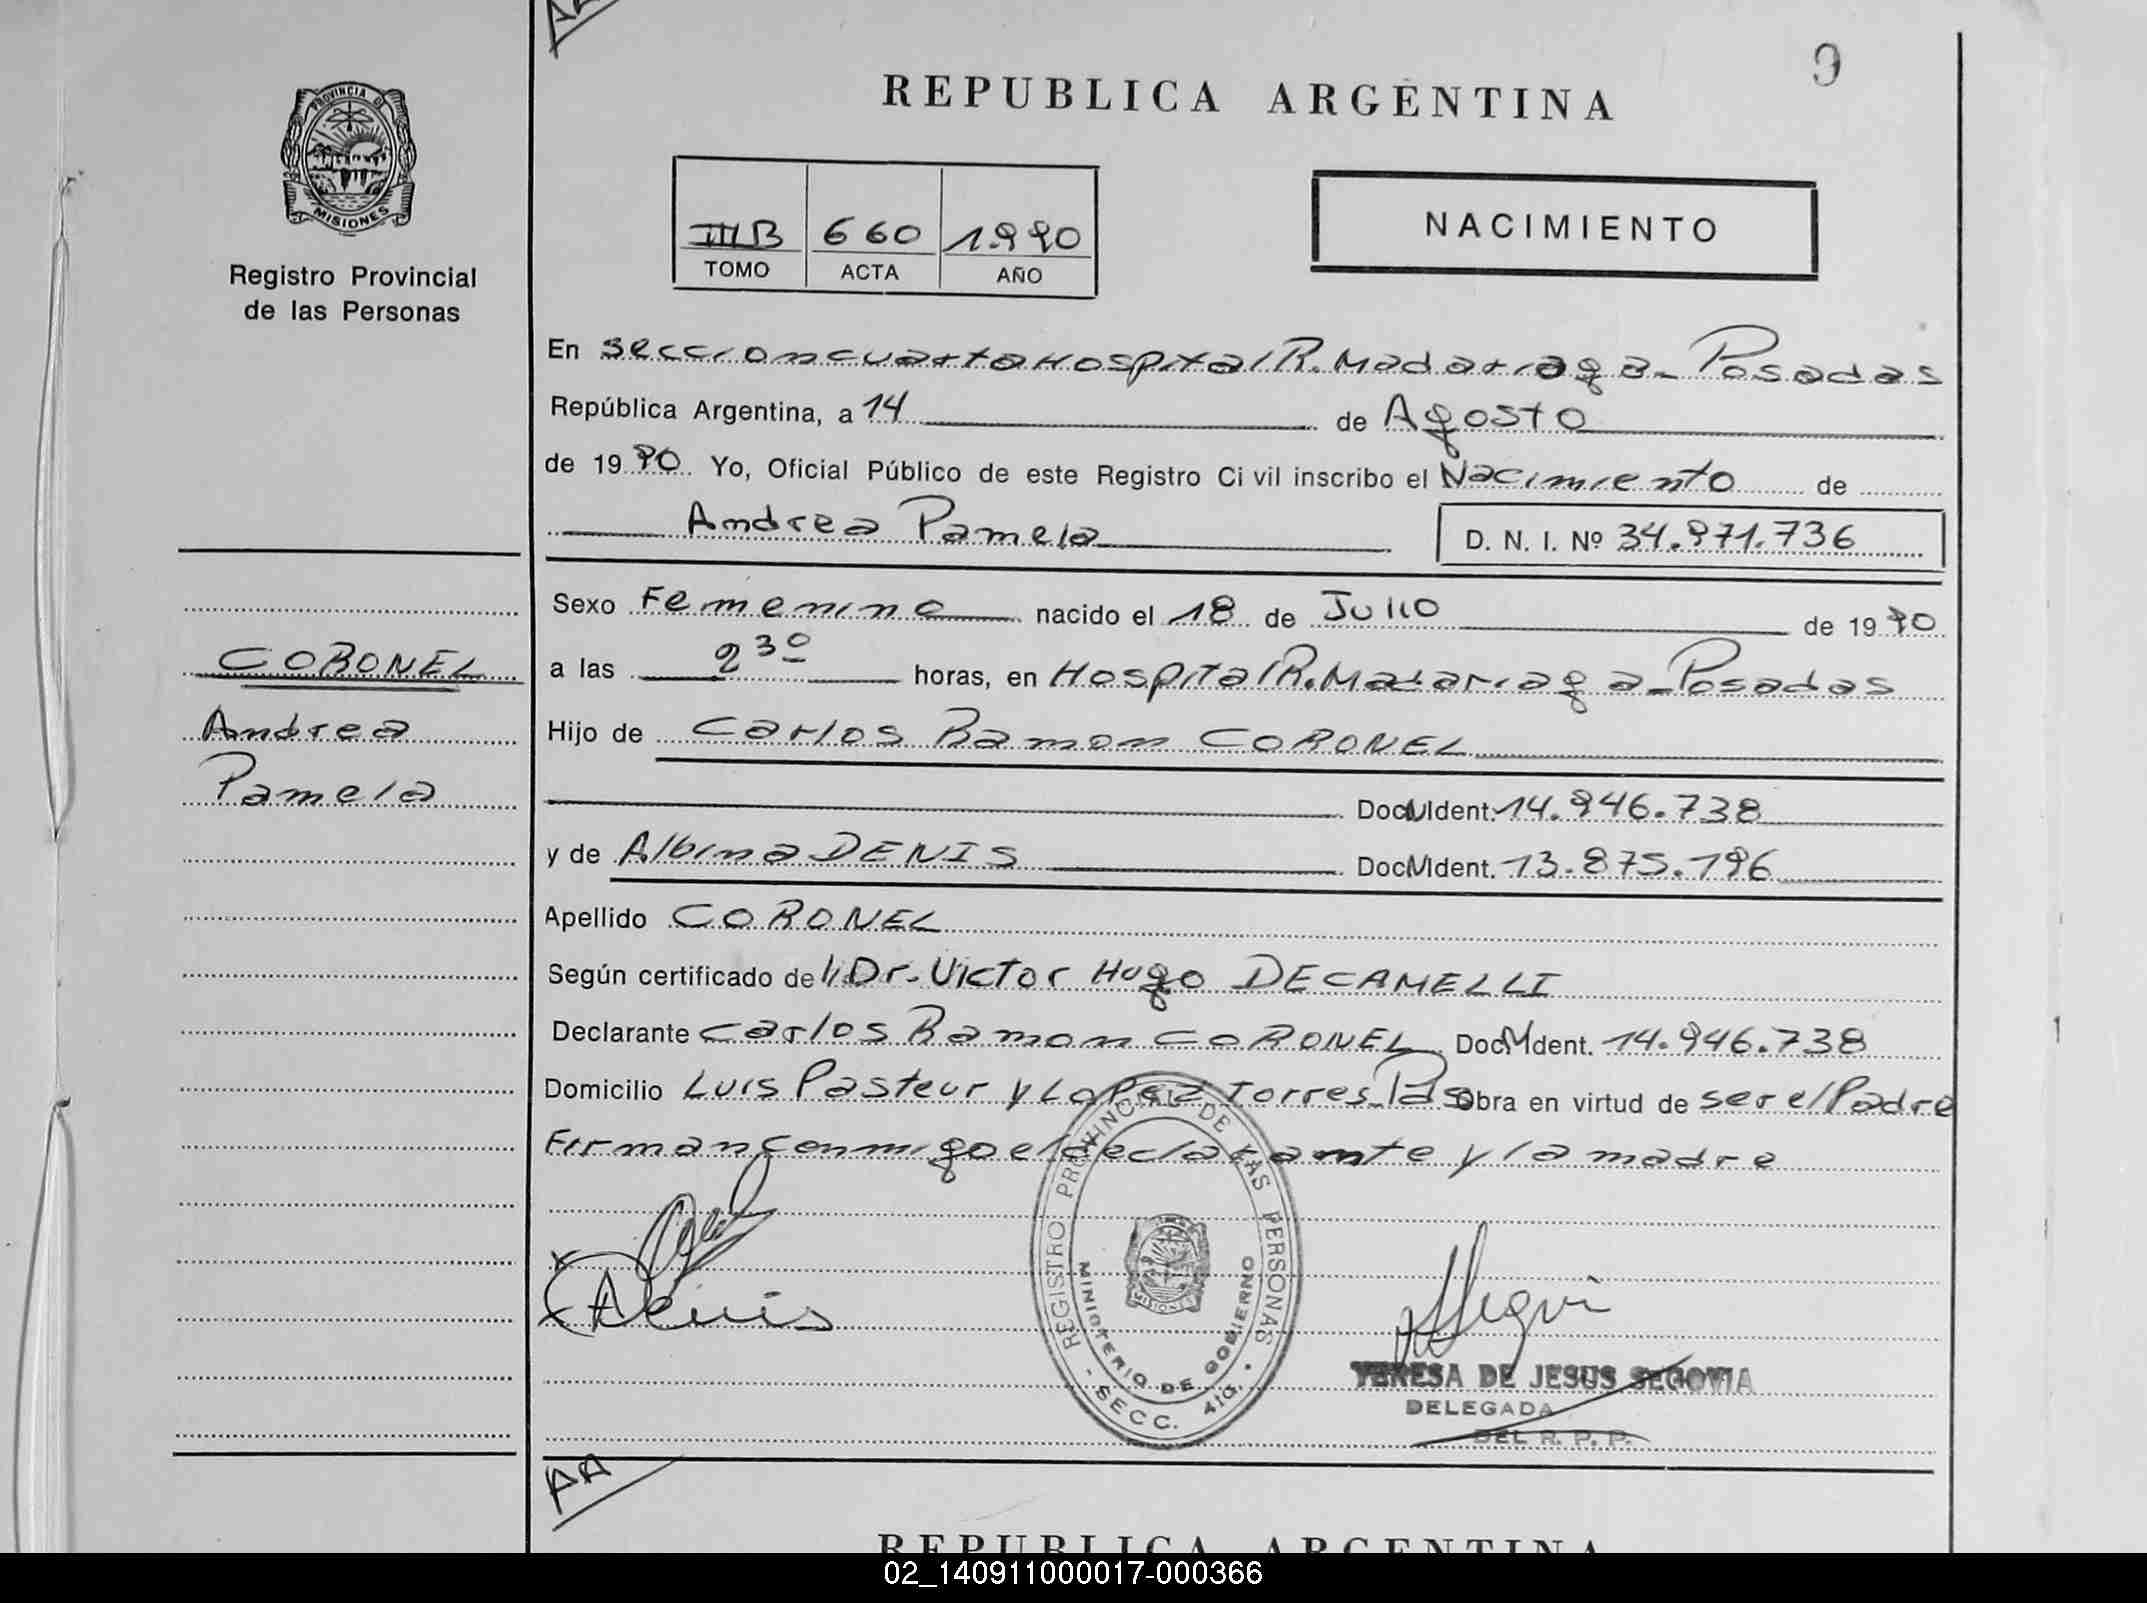 9
REPUBLICA ARGENTINA
PROVINCIA DE
MISIONES
Registro Provincial
de las Personas
III B 660 1990
TOMO ACTA AÑO
NACIMIENTO
En Seccion cuarta Hospital R. Madariaga - Posadas
República Argentina, a 14 de Agosto
de 1990. Yo, Oficial Público de este Registro Civil inscribo el Nacimiento de
Andrea Pamela D. N. I. Nº 34.971.736
Sexo Femenino nacido el 18 de Julio de 1990
a las 2 30 horas, en Hospital R. Madariaga - Posadas
Hijo de Carlos Ramon CORONEL
Doc M Ident. 14.946.738
y de Albina DENIS Doc M Ident. 13.875.796
Apellido CORONEL
Según certificado del Dr. Victor Hugo DECAMELLI
Declarante Carlos Ramon CORONEL Doc M Ident. 14.946.738
Domicilio Luis Pasteur y Lopez Torres Pdas Obra en virtud de ser el Padre
Firman conmigo el declarante y la madre
CORONEL
Andrea
Pamela
ADenis
REGISTRO PROVINCIAL DE LAS PERSONAS
MINISTERIO DE GOBIERNO
SECC. 4ta.
MISIONES
TERESA DE JESUS SEGOVIA
DELEGADA
DEL R. P. P.
AA
REPUBLICA ARGENTINA
02_140911000017-000366